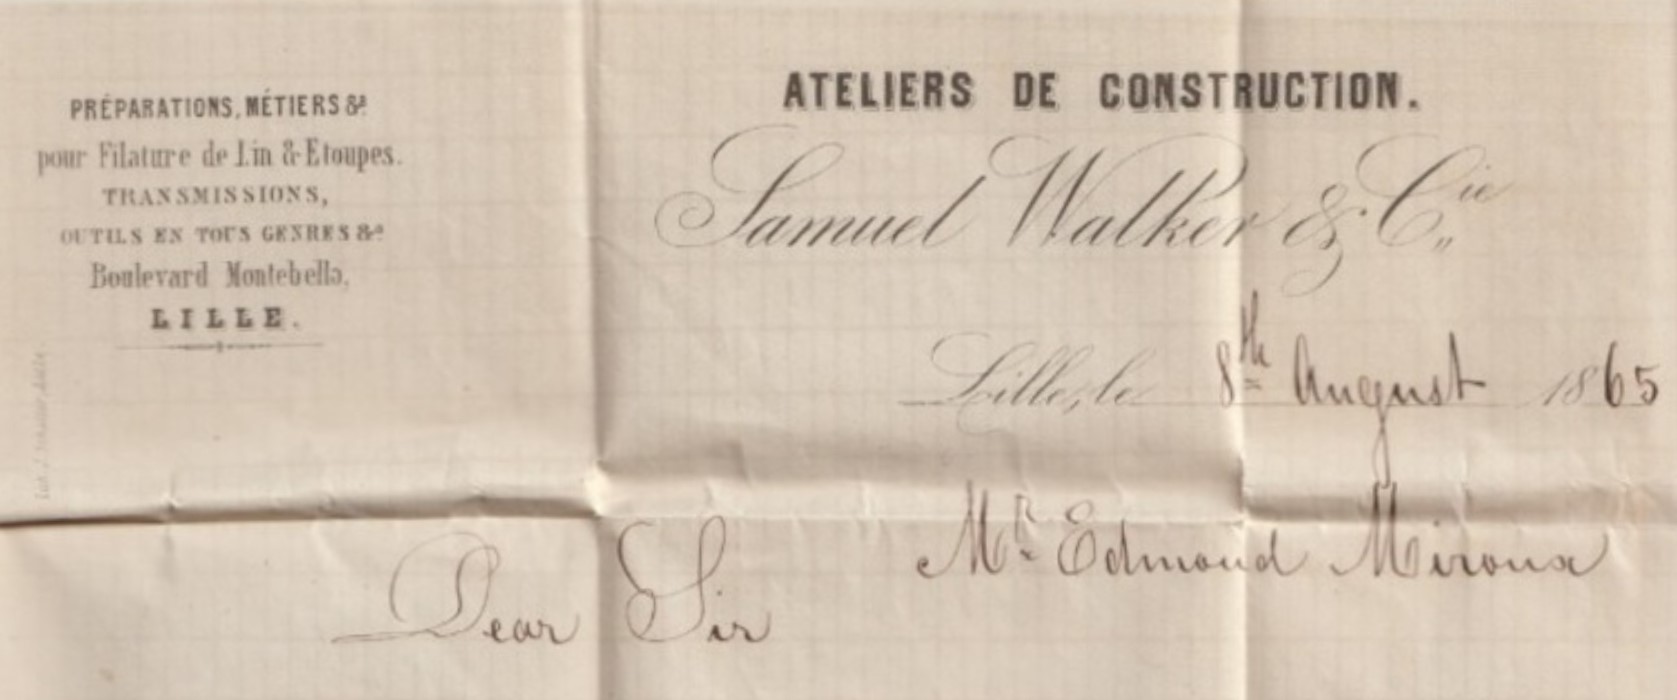 PRÉPARATIONS, MÉTIERS &ª
pour Filature de Lin & Etoupes.
TRANSMISSIONS,
OUTILS EN TOUS GENRES &ª
Boulevard Montebello,
LILLE.
ATELIERS DE CONSTRUCTION.
Samuel Walker & Cie
Lille, le 8th August 1865
Mr Edmond Miroux
Dear Sir